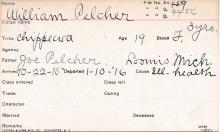 English name William Pelcher File No.
Indian name
Tribe Chippewa Age 19 Blood 3 yrs.
Agency
Father Joe Pelcher, Loomis Mich.
Arrived 10-22-15 Departed 1-10-16 Cause Ill-health
Class entered Class left
Outing
Trade
Character
Married Deceased
Remarks